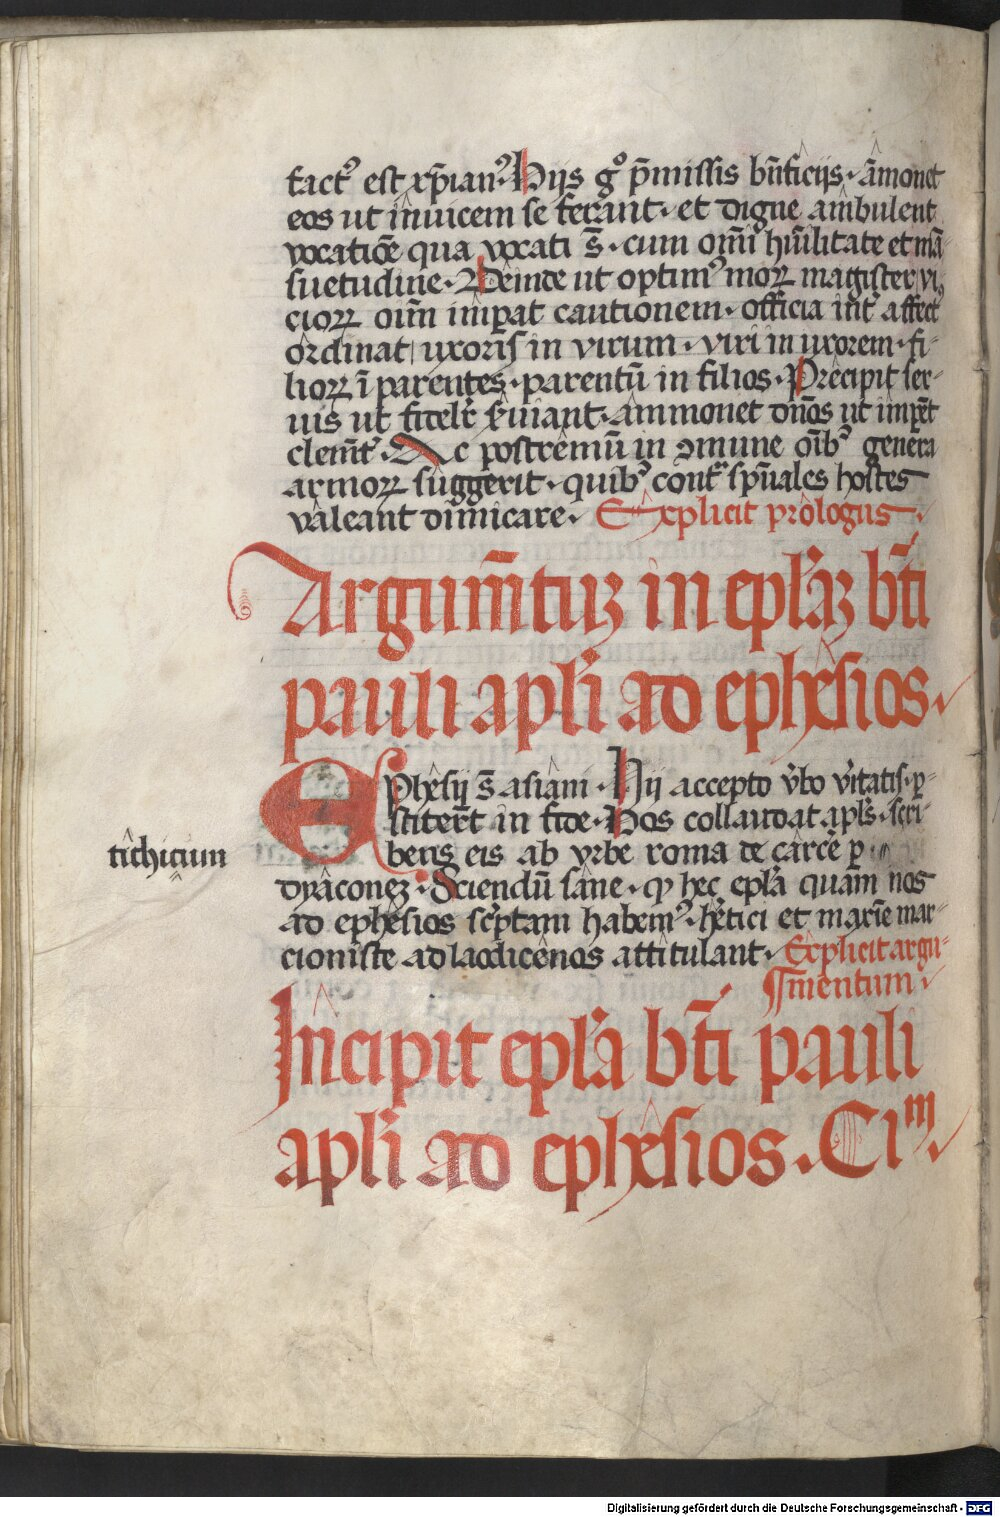 fact᷒ est xp̄ian᷒. Hijs gͦ p̄missis bn̄ficijs. am̄onet
eos ut invicem se ferant. et digne ambulent
vocatiōe qua vocati s̄. cum om̄i hūilitate et mā-
suetudine. Deinde ut optim᷒ moꝝ magister vi-
cioꝝ oīm imꝑat cautionem. officia int̄ affect᷒
ordinat, uxoris in virum. viri in uxorem. fi-
lioꝝ ī parentes. parentū in filios. Precipit ser-
uis ut fidelr̄ s̄uiant. ammonet dn̄os ut imꝑēt
clemēt᷒. Ac postremū in ꝯmune oīb᷒ genera
armoꝝ suggerit. quib᷒ contᷓ sp̄uales hostes
valeant dimicare. Explicit prologus.
Argum̄tuꝫ in epl̄aꝫ bt̄i
pauli apl̄i ad ephesios.
Ephesij s̄ asiani. Hij accepto v̄bo v̄itatis. ꝑ-
stiterūt in fide. Hos collaudat apl̄s. scri-
bens eis ab vrbe roma de carcē ꝑ
tichicum
dyaconeꝫ. Sciendū sane. ꝙ hec epl̄a quam nos
ad ephesios sc̄ptam habem᷒. hēt̄ici et maxīe mar-
cioniste ad laodicenos attitulant. Explicit argu-
mentum.
Incipit epl̄a bt̄i pauli
apl̄i ad ephesios. Cᵐ I
Digitalisierung gefördert durch die Deutsche Forschungsgemeinschaft - DFG